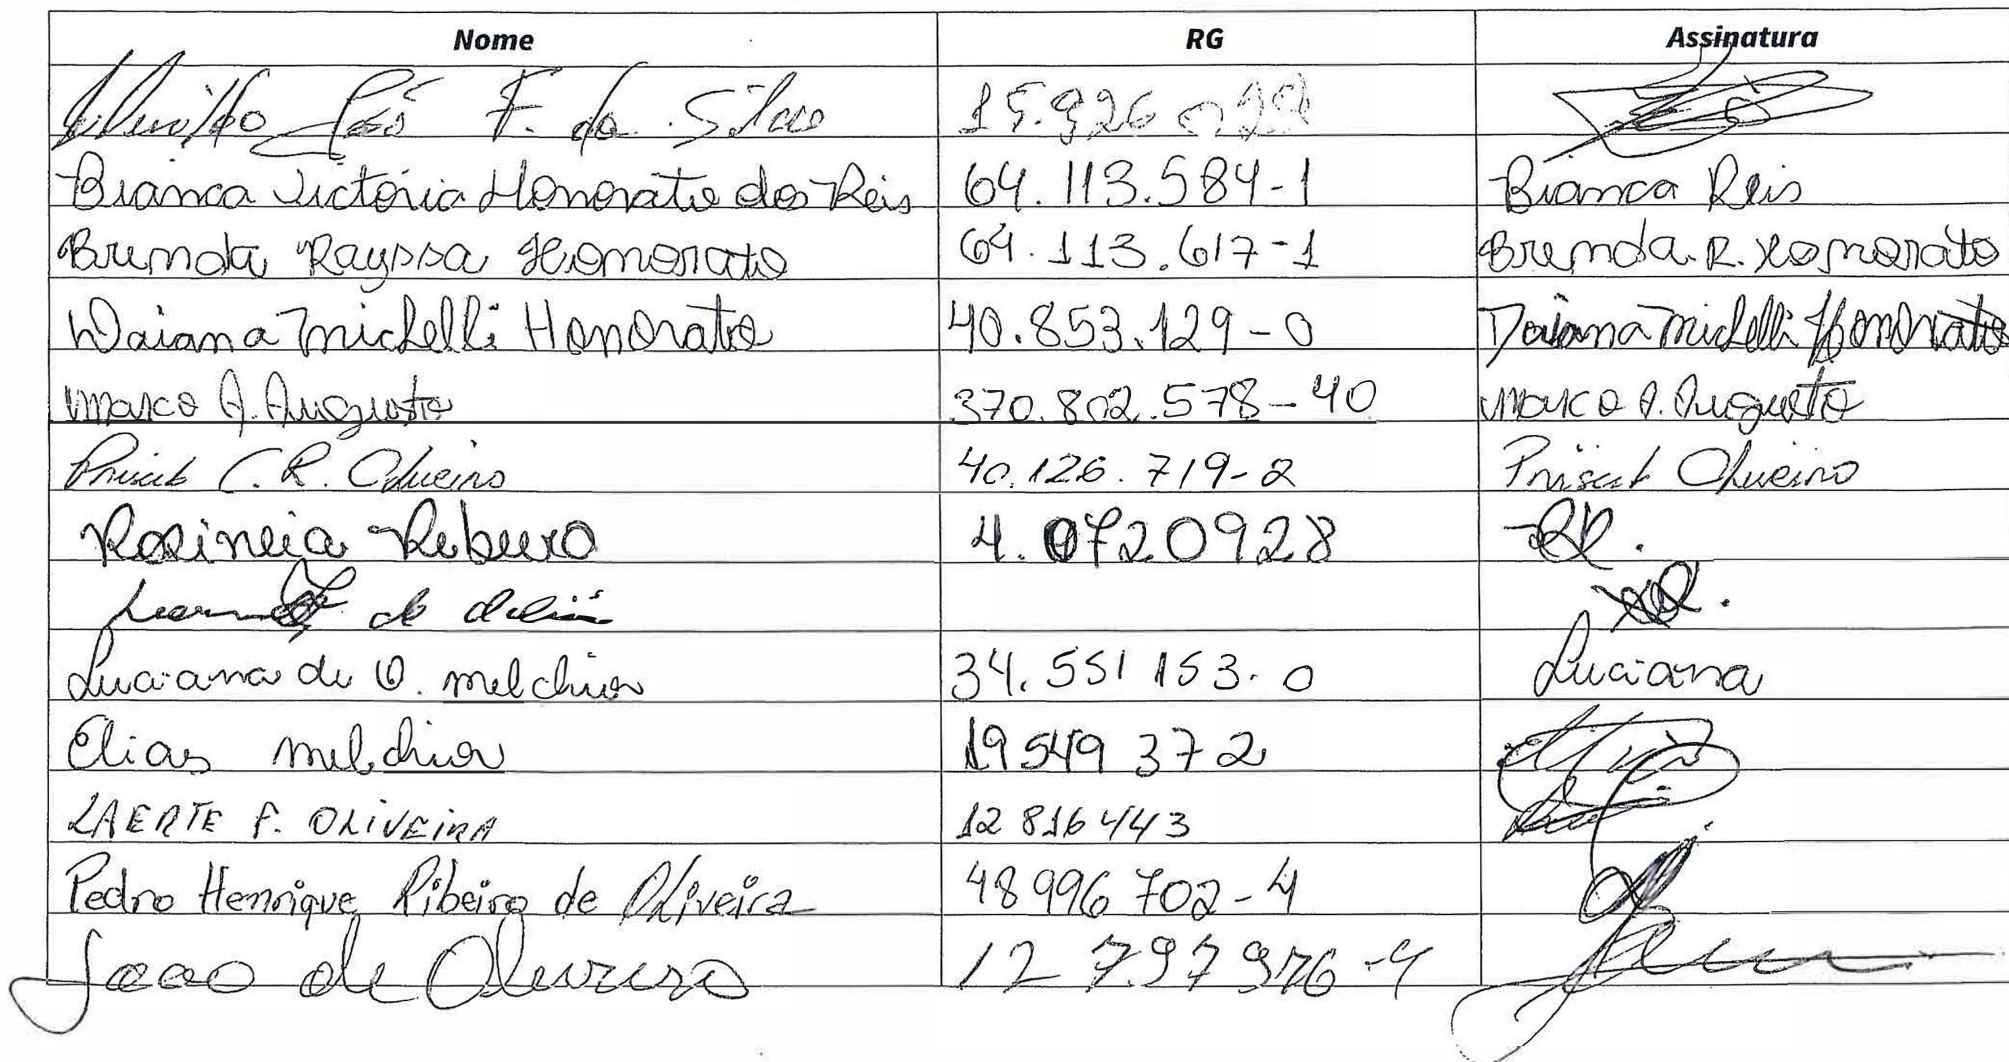 Nome RG Assinatura
José F. da Silva 15.926
Bianca Victória Honorato dos Reis 64.113.584-1 Bianca Reis
Brenda Rayssa Honorato 64.113.617-1 Brenda. R. Honorato
Daiana Michelli Honorato 40.853.129-0 Daiana Michelli Honorato
Marco A. Augusto 370.802.578-40 Marco A. Augusto
C. R. Oliveira 40.126.719-2 Oliveira
Rosineia Ribeiro 4.0720928 RR.
de
Luciana de O. Melchior 34.551 153. 0 Luciana
Elias Melchior 19549 372
LAERTE F. OLIVEIRA 12 816443
Pedro Henrique Ribeiro de Oliveira 48996 702-4
Joao de Oliveira 12 797 976-4